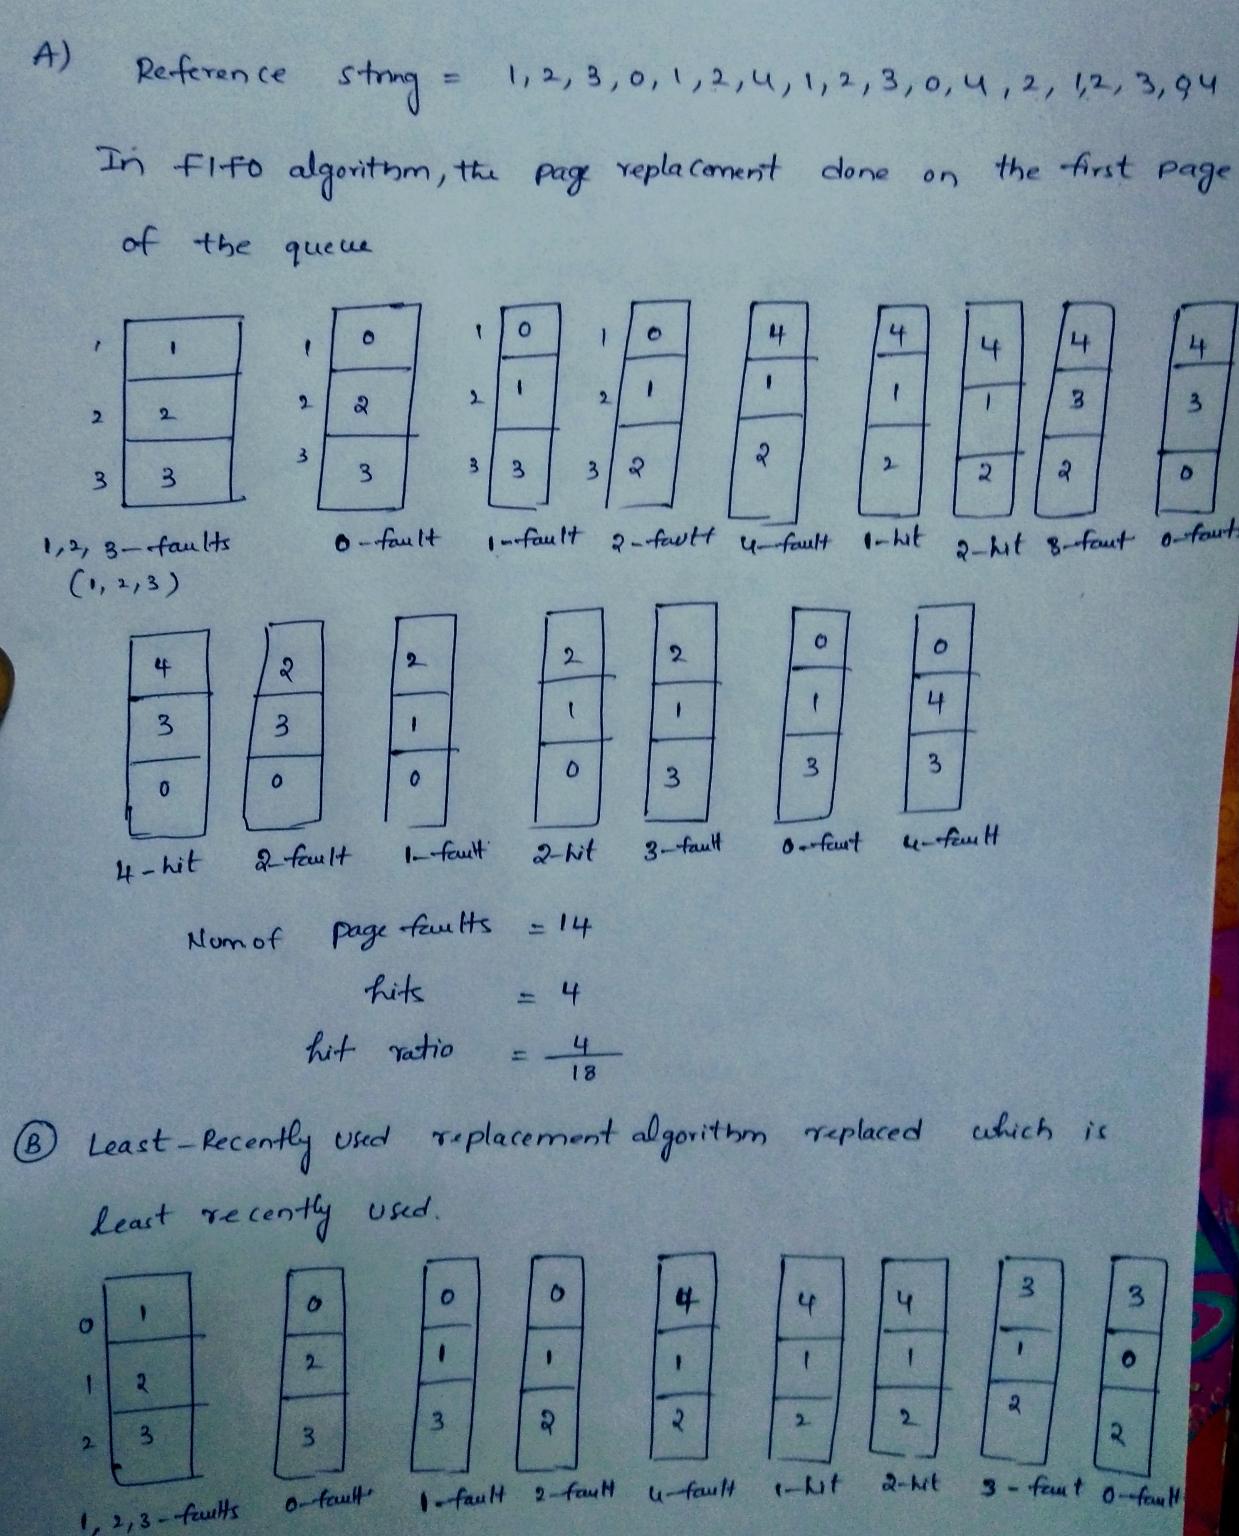 A) Reference string = 1, 2, 3, 0, 1, 2, 4, 1, 2, 3, 0, 4, 2, 1, 2, 3, 0, 4
In FIFO algorithm, the page replacement done on the first page
of the queue
1 1 1 0 1 0 1 0 4 4 4 4 4
2 2 2 2 2 1 2 1 1 1 1 3 3
3 3 3 3 3 3 3 2 2 2 2 2 0
1, 2, 3 - faults 0 - fault 1 - fault 2 - fault 4 - fault 1 - hit 2 - hit 3 - faut 0 - faut
(1, 2, 3)
4 2 2 2 2 0 0
3 3 1 1 1 1 4
0 0 0 0 3 3 3
4 - hit 2 - fault 1 - fault 2 - hit 3 - fault 0 - faut 4 - fault
Num of page faults = 14
hits = 4
hit ratio = 4
18
(B) Least - Recently Used replacement algorithm replaced which is
least recently used.
0 1 0 0 0 4 4 4 3 3
1 2 2 1 1 1 1 1 1 0
2 3 3 3 2 2 2 2 2 2
1, 2, 3 - faults 0 - fault 1 - fault 2 - fault 4 - fault 1 - hit 2 - hit 3 - faut 0 - fault